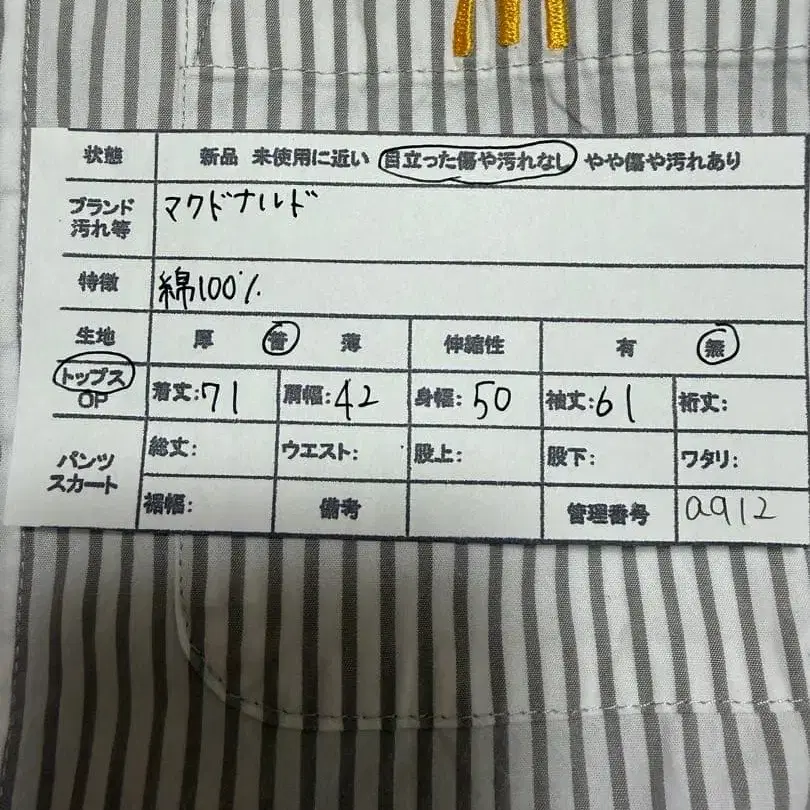 状態 新品 未使用に近い 目立った傷や汚れなし やや傷や汚れあり
ブランド 汚れ等 マクドナルド
特徴 綿100%
生地 厚 普 薄 伸縮性 有 無
トップス OP 着丈:71 肩幅:42 身幅:50 袖丈:61 裄丈:
パンツ スカート 総丈: ウエスト: 股上: 股下: ワタリ:
裾幅: 備考 管理番号 a912